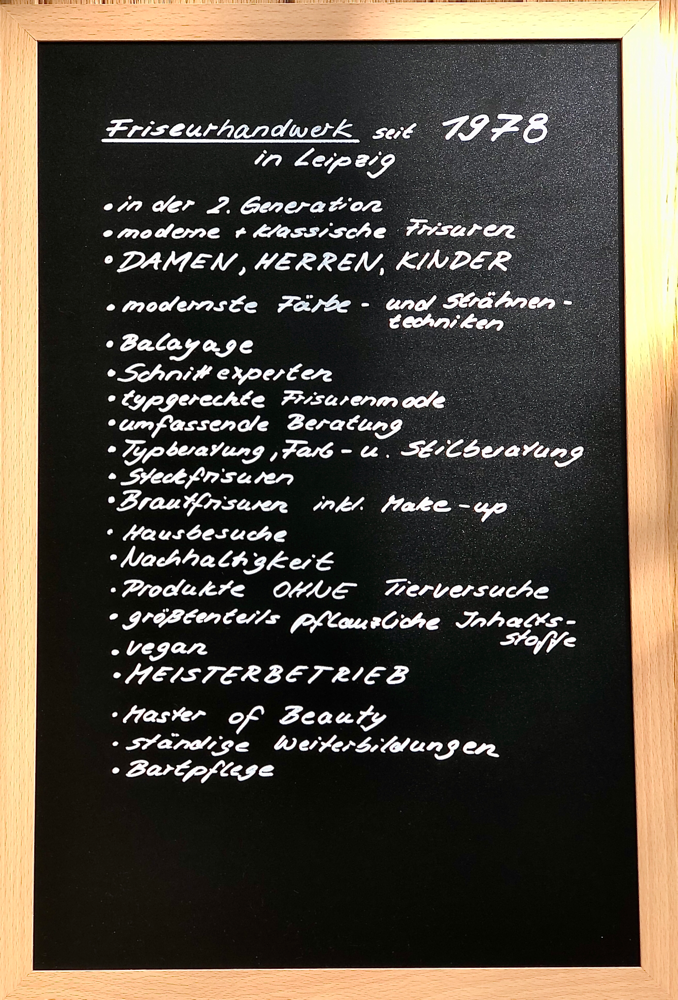 Friseurhandwerk seit 1978
in Leipzig
• in der 2. Generation
• moderne + klassische Frisuren
• DAMEN, HERREN, KINDER
• modernste Färbe- und Strähnen-
techniken
• Balayage
• Schnittexperten
• typgerechte Frisurenmode
• umfassende Beratung
• Typberatung, Farb- u. Stilberatung
• Steckfrisuren
• Brautfrisuren inkl. Make-up
• Hausbesuche
• Nachhaltigkeit
• Produkte OHNE Tierversuche
• größtenteils pflanzliche Inhalts-
stoffe
• vegan
• MEISTERBETRIEB
• Master of Beauty
• ständige Weiterbildungen
• Bartpflege